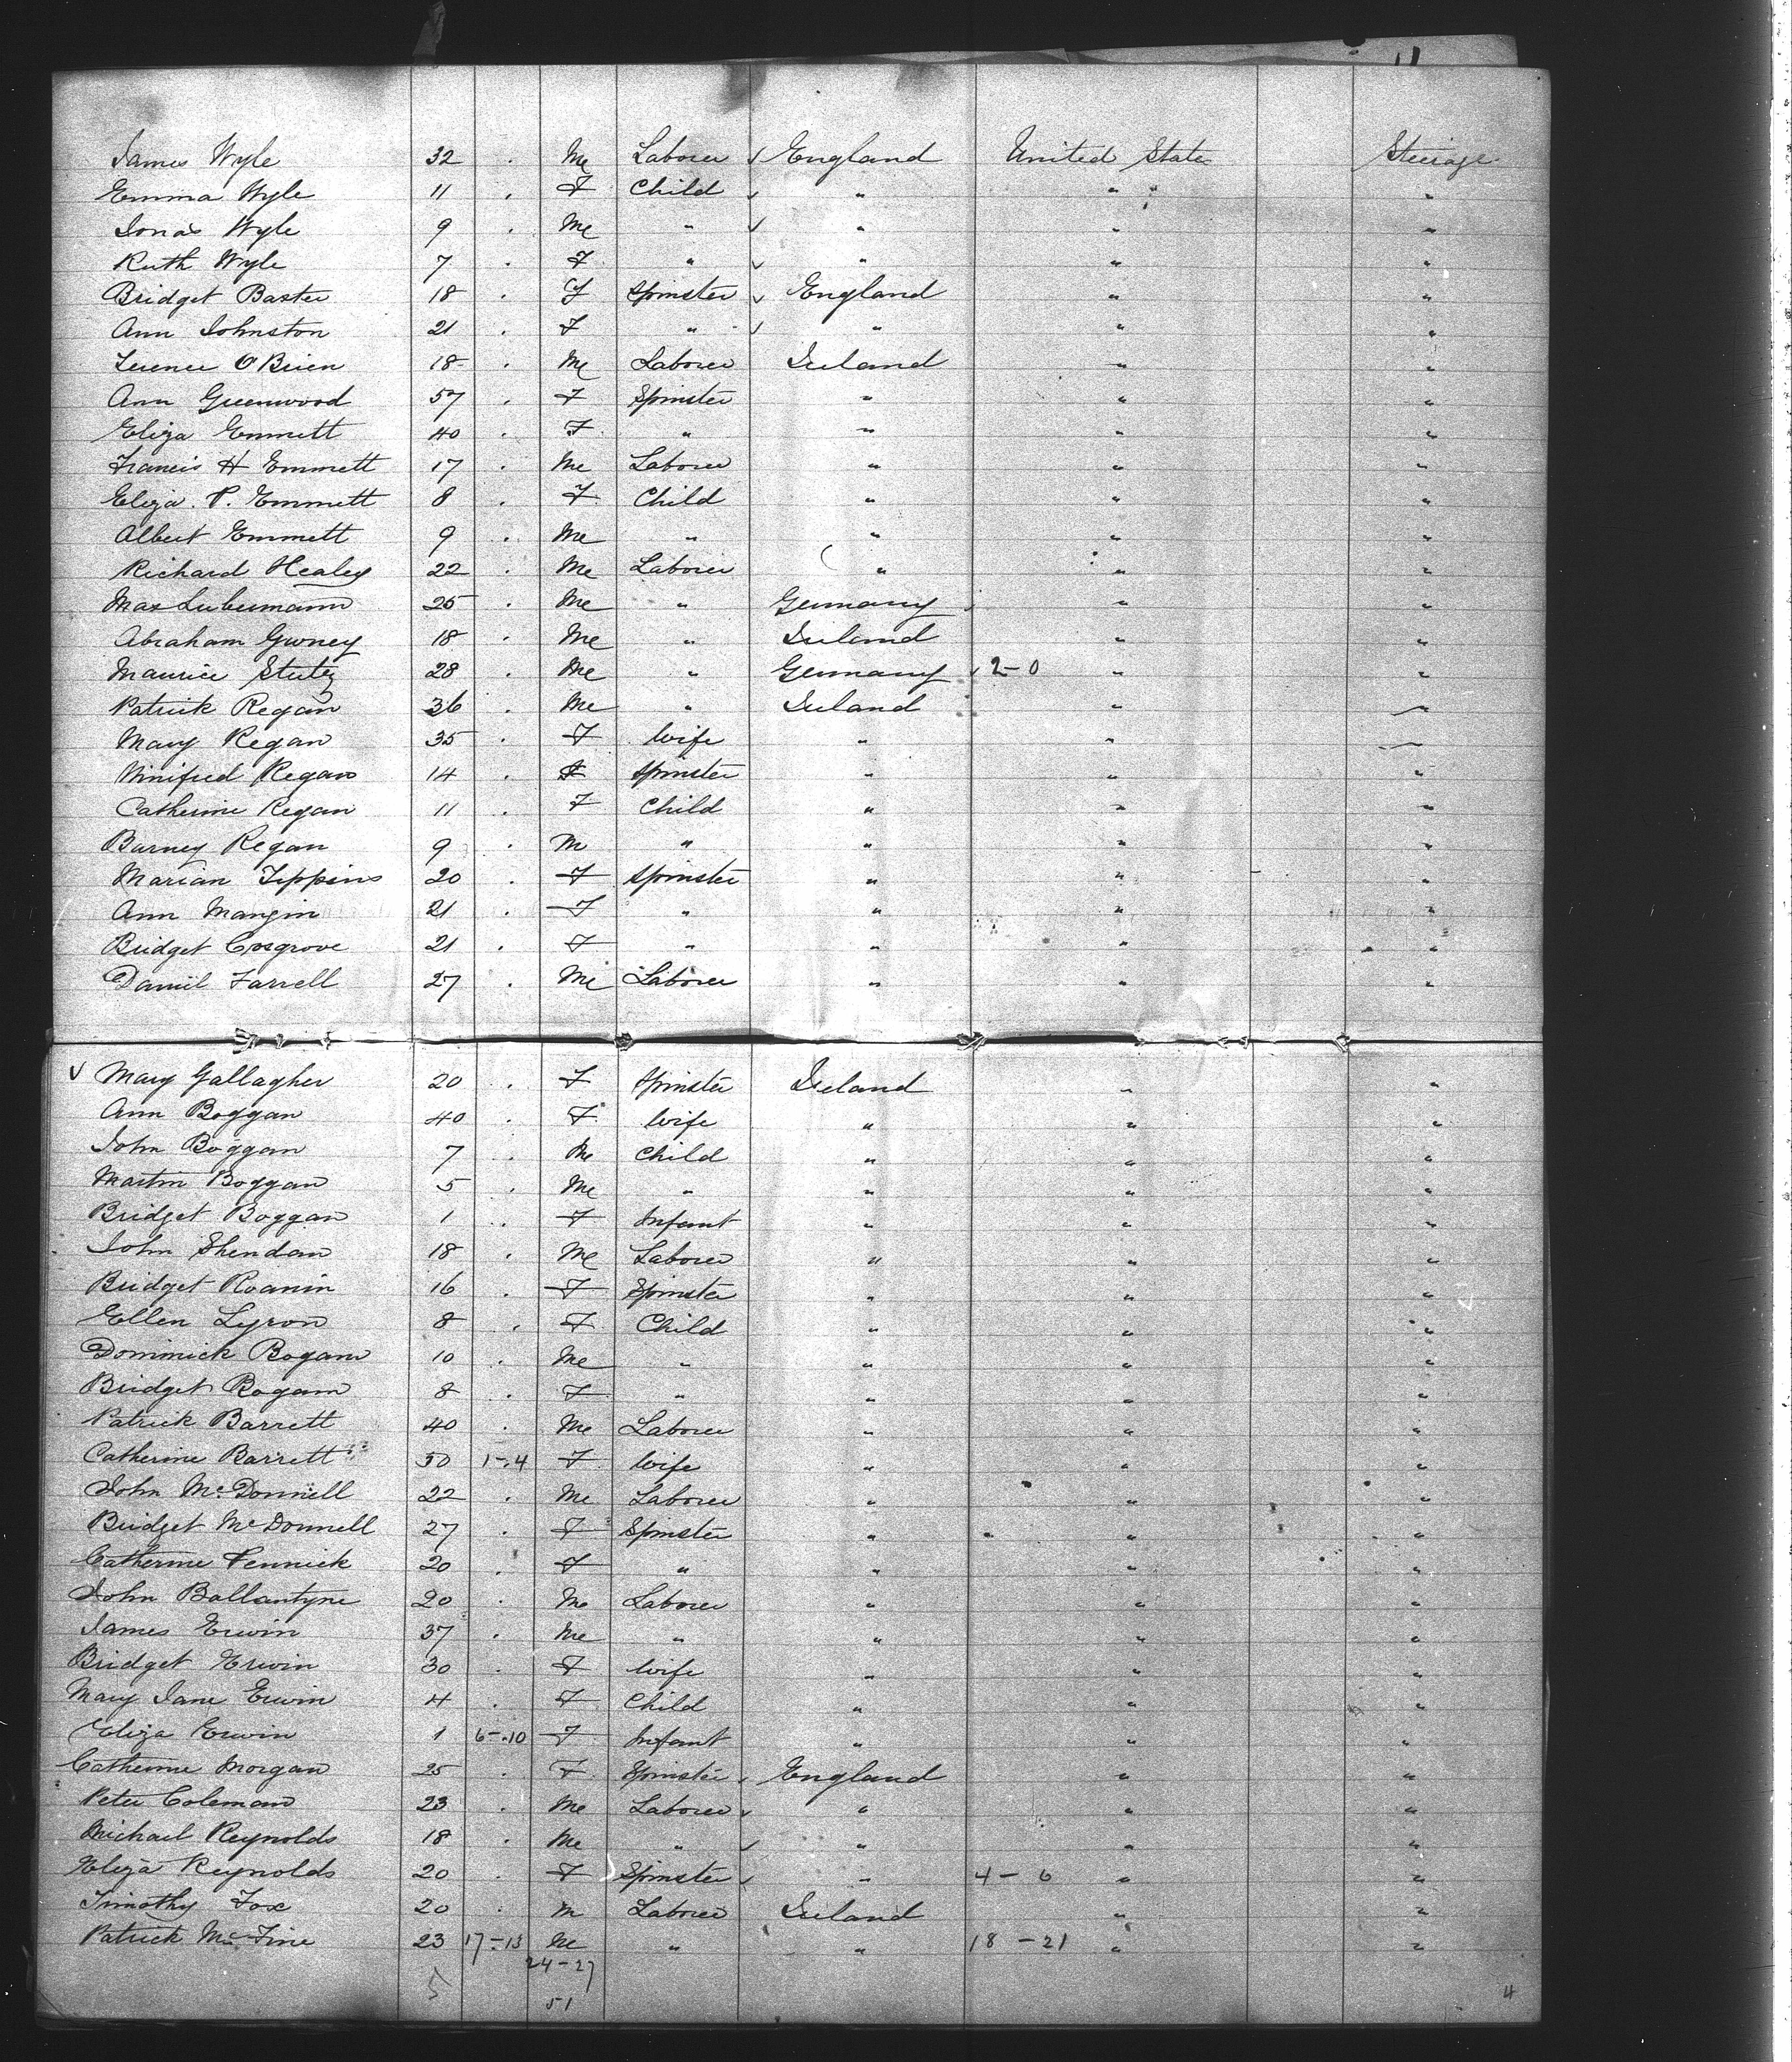 James Wyle 32 . Me Laborer ✓ England United States Steerage
Emma Wyle 11 . F Child ✓ " " " "
Jonas Wyle 9 . Me " ✓ " " "
Ruth Wyle 7 . F " ✓ " " "
Bridget Baxter 18 . F Spinster ✓ England " "
Ann Johnston 21 . F " ✓ " " "
Terence O'Brien 18 . Me Laborer Ireland " "
Ann Greenwood 57 . F Spinster " " "
Eliza Emmett 40 . F " " " "
Francis H Emmett 17 . Me Laborer " " "
Eliza. P. Emmett 8 . F Child " " "
Albert Emmett 9 . Me " " " "
Richard Healey 22 . Me Laborer " " "
Max 25 . Me " Germany ✓ " "
Abraham 18 . Me " Ireland " "
Maurice 28 . Me " Germany ✓ 2-0 " "
Patrick Regan 36 . Me " Ireland " "
Mary Regan 35 . F Wife " " "
Winifred Regan 14 . F Spinster " " "
Catherine Regan 11 . F Child " " "
Barney Regan 9 . M " " " "
Marian Tippins 20 . F Spinster " " "
Ann Mangin 21 . F " " " "
Bridget Cosgrove 21 . F " " " "
Daniel Farrell 27 . Me Laborer " " "
✓ Mary Gallagher 20 . F Spinster Ireland " "
Ann Boggan 40 . F Wife " " "
John Boggan 7 . Me Child " " "
Martin Boggan 5 . Me " " " "
Bridget Boggan 1 . F Infant " " "
John Sheridan 18 . Me Laborer " " "
Bridget Roanin 16 . F Spinster " " "
Ellen Lyron 8 . F Child " " "
Dominick Rogan 10 . Me " " " "
Bridget Rogan 8 . F " " " "
Patrick Barrett 40 . Me Laborer " " "
Catherine Barrett 50 1-4 F Wife " " "
John McDonnell 22 . Me Laborer " " "
Bridget McDonnell 27 . F Spinster " " "
Catherine Pennick 20 . F " " " "
John Ballantyne 20 . Me Laborer " " "
James Erwin 37 . Me " " " "
Bridget Erwin 30 . F Wife " " "
Mary Jane Erwin 4 . F Child " " "
Eliza Erwin 1 6-10 F Infant " " "
Catherine Morgan 25 . F Spinster ✓ England " "
Peter Coleman 23 . Me Laborer ✓ " " "
Michael Reynolds 18 . Me " ✓ " " "
Eliza Reynolds 20 . F Spinster ✓ " 4-6 " "
Timothy Fox 20 . M Laborer Ireland " "
Patrick McTine 23 17-13 Me " " 18-21 " "
24-27
5 51 4